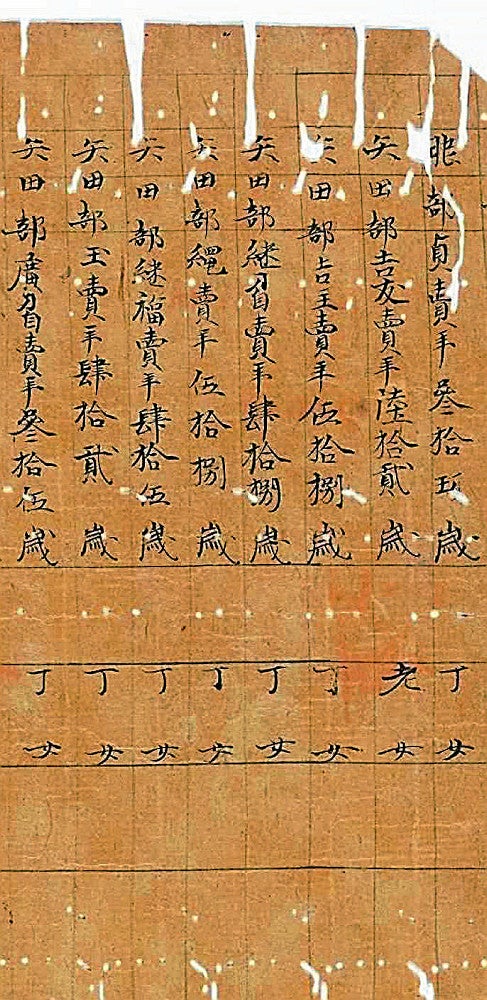 部貞賣年參拾玖歲 丁女
矢田部吉友賣年陸拾貳歲 老女
矢田部吉主賣年伍拾捌歲 丁女
矢田部継刀自賣年肆拾捌歲 丁女
矢田部縄賣年伍拾捌歲 丁女
矢田部継福賣年肆拾伍歲 丁女
矢田部玉賣年肆拾貳歲 丁女
矢田部廣刀自賣年參拾伍歲 丁女